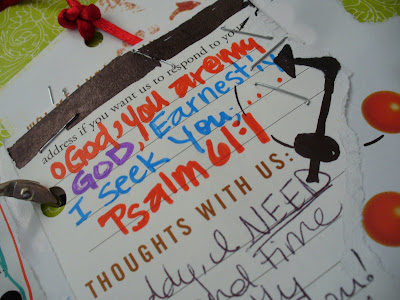 address if you want us to respond to you
o God, you are my
GOD, Earnestly
I seek You;...
Psalm 61:1
THOUGHTS WITH US:
ddy, I NEED
nd Time